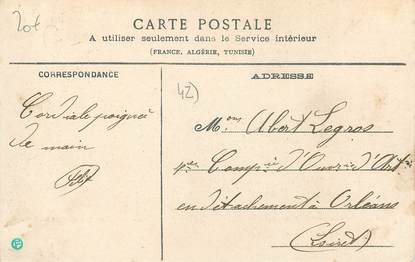 20f
CARTE POSTALE
A utiliser seulement dans le Service intérieur
(FRANCE, ALGÉRIE, TUNISIE)
CORRESPONDANCE
ADRESSE
42)
Cordiale poignée
de main
Mr Albert Legros
Comp^ie d'Ouvr^s d'Art^ie
en détachement à Orléans
(Loiret)